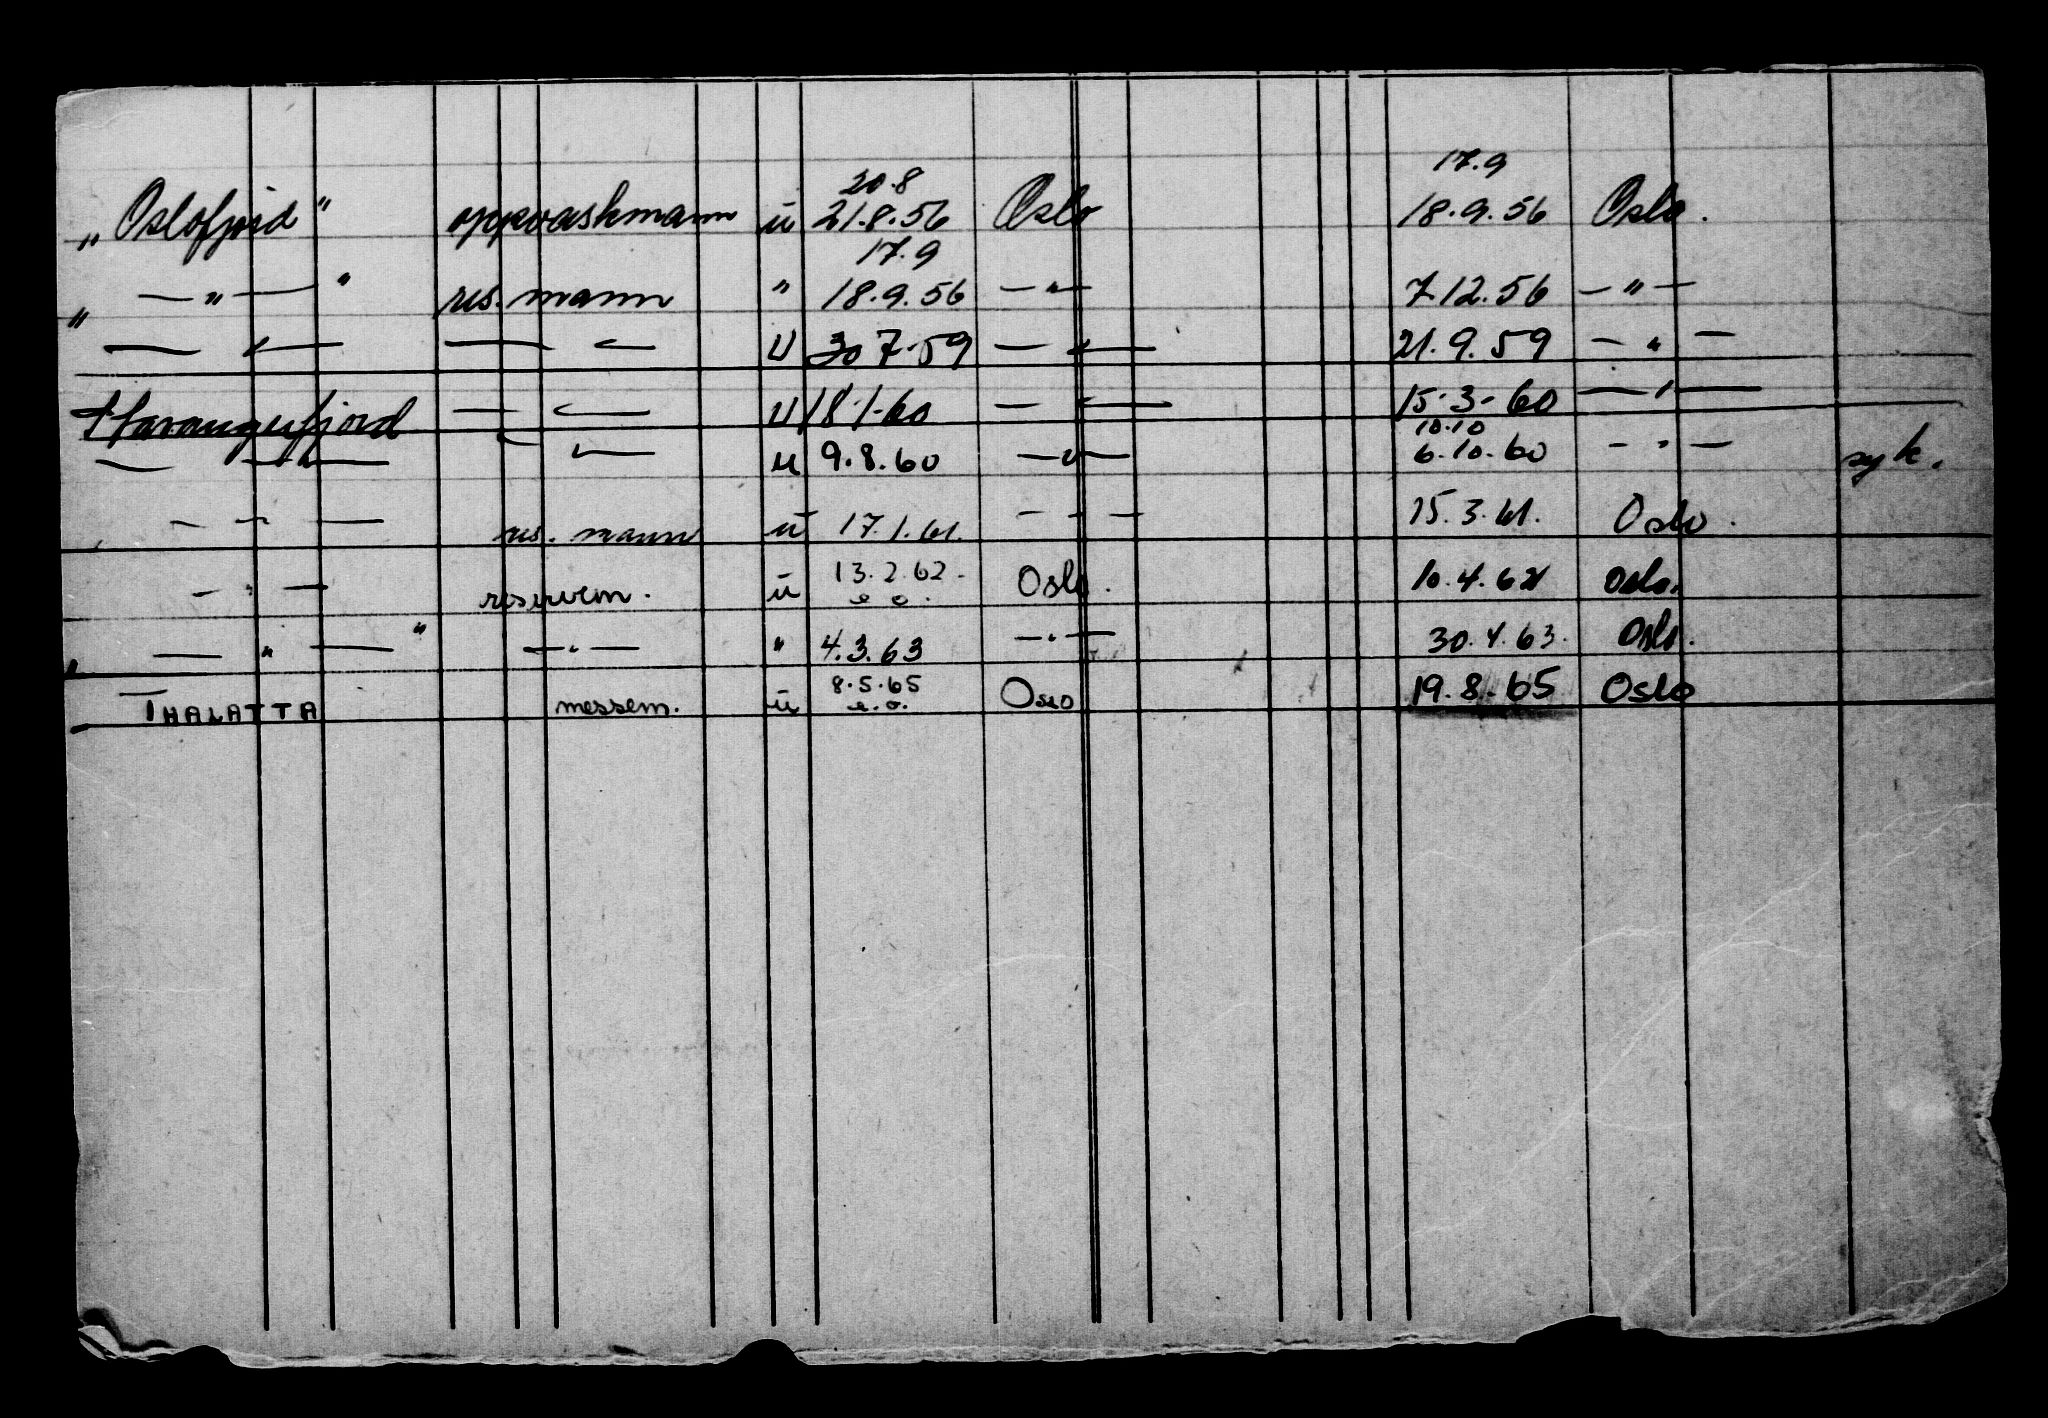 20.8 17.9
„Oslofjord" oppvaskmann ū 21.8.56 Oslo 18.9.56 Oslo.
17.9
„ — „ — " res. mann " 18.9.56 — " — 7.12.56 — " —
— " — — " — U 30.7.59 — " — 21.9.59 — " —
Stavangerfjord — " — U 18.1.60 — " — 15.3.60 — " —
10.10
— " — — " — u 9.8.60 — " — 6.10.60 — " — syk.
— " — res. mann ū 17.1.61. — " — 15.3.61. Oslo.
— " — reservem. ū 13.2.62. Oslo. 10.4.62 Oslo.
e. o.
„ — " — " — " — " 4.3.63 — " — 30.4.63. Oslo.
8.5.65
THALATTA messem. ū e. o. Oslo 19.8.65 Oslo